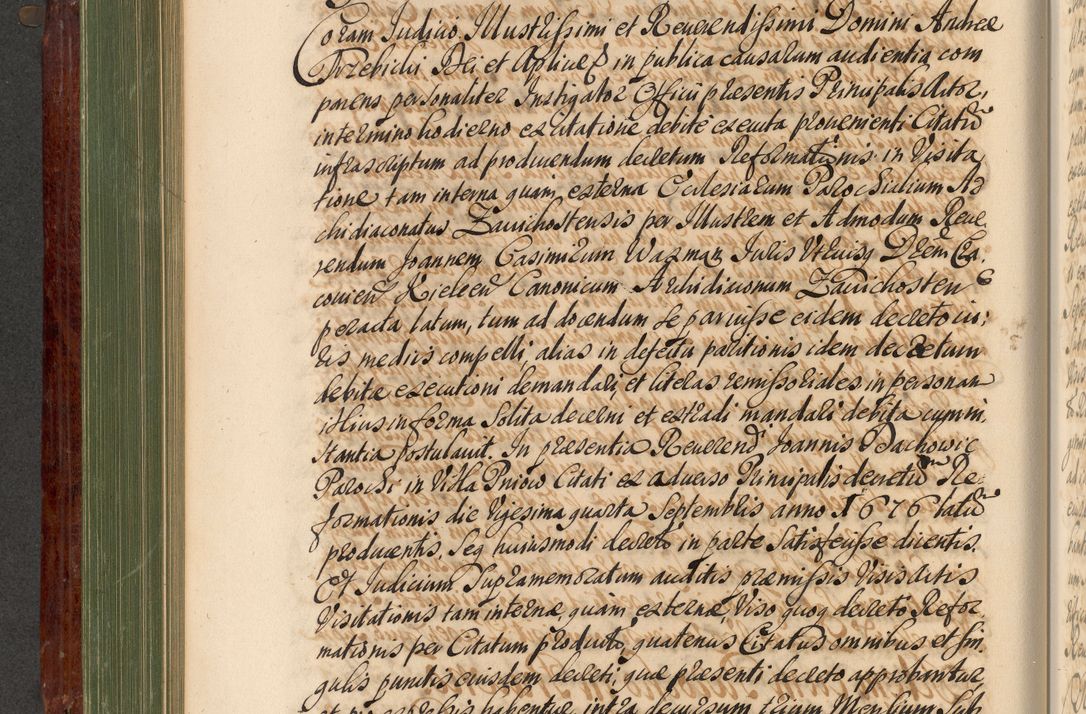 Coram Judicio Illustrissimi et Reverendissimi Domini Andreæ
Trzebicki Dei et Aplicæ &c in publica causarum audientia com
parens personaliter Instigator Officii præsentis Principalis Actor,
in termino hodierno ex citatione debite executa provenienti Citatum
infrascriptum ad producendum decretum Reformationis in Visita
tione tam interna quam externa Ecclesiarum Parochialium Ar
chidiaconatus Zavichostensis per Illustrem et Admodum Reve
rendum Joannem Casimirum Juris Utriusq Drem Cra,
covien Kielcen Canonicum Archidiaconum Zavichosten
peracta latum, tum ad docendum se paruisse eidem decreto iu,
ris mediis compelli, alias in defectu paritionis idem decretum
debitæ executioni demandari, et literas remissoriales in personam
illius in forma solita decerni et extradi mandari debita cum in
stantia postulavit. In præsentia Reverend Joannis Bachowic
Parochi in Villa Pniow Citati ex adverso Principalis decretum Re-
formationis die Vigesima quarta Septembris anno 1676 latum
producentis, Seq huiusmodi decreto in parte satisfecisse dicentis.
Et Judicium Supramemoratum auditis præmissis Visis actis
Visitationis tam internæ quàm externæ, Viso quoq decreto Refor
mationis per Citatum producto, quatenus Citatus omnibus et sin,
gulis punctis eiusdem decreti, quæ præsenti decreto approbantur
et pro expressis habentur intra decursum trium Mensium sub